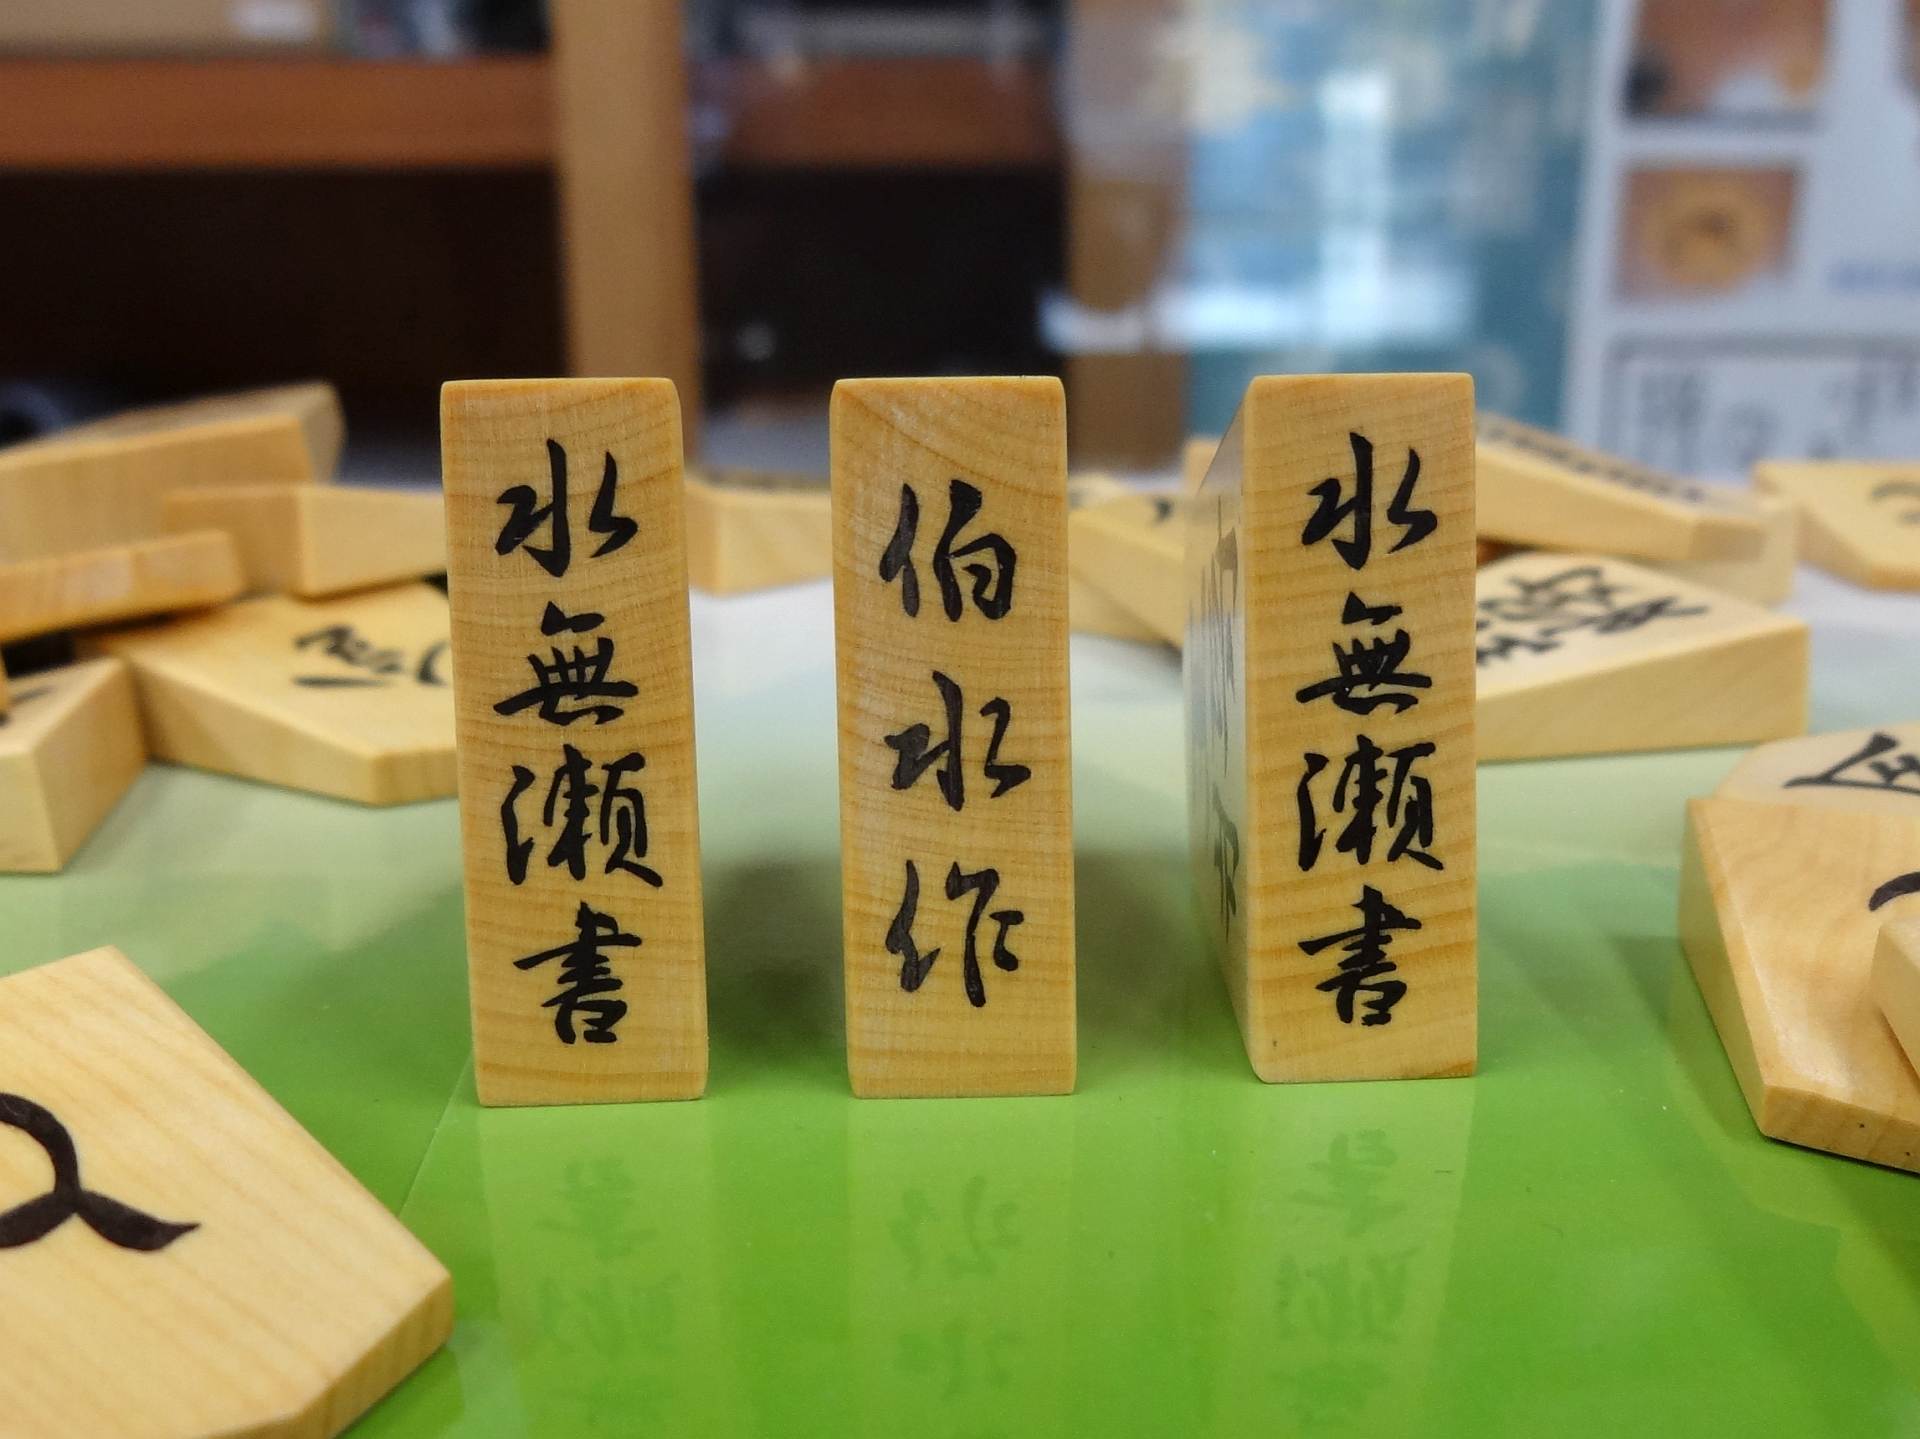 水無瀬書
伯水作
水無瀬書